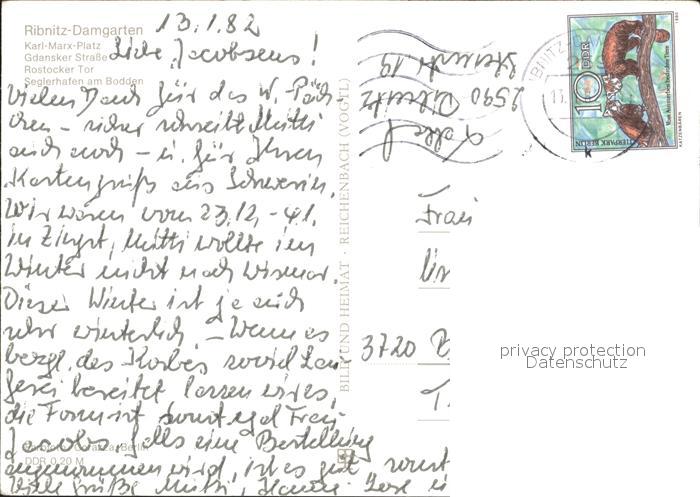 Ribnitz-Damgarten
Karl-Marx-Platz
Gdansker Straße
Rostocker Tor
Seglerhafen am Bodden
13.1.82
Liebe Jacobsens!
Vielen Dank für das W.-Päck-
chen - sicher schreibt Mutti
auch noch - u. für Ihren
Kartengruß aus Schwerin.
Wir waren vom 23.12.-4.1.
in Zingst, Mutti wollte im
Winter nicht nach Wismar.
Dieser Winter ist ja auch
sehr winterlich. - Wenn es
bezgl. des Korbes soviel Lau-
ferei bereitet lassen wir es,
die Form ist sonst egal Frau
Jacobs, falls eine Bestellung
angenommen wird, ist es gut, sonst
Viele Grüße Mutti,
DDR 0,20 M
BILD UND HEIMAT · REICHENBACH (VOGTL)
2590 Ribnitz
19
Frau
3720 B
10
DDR
TIERPARK BERLIN
KATZENBÄREN
1980
privacy protection
Datenschutz